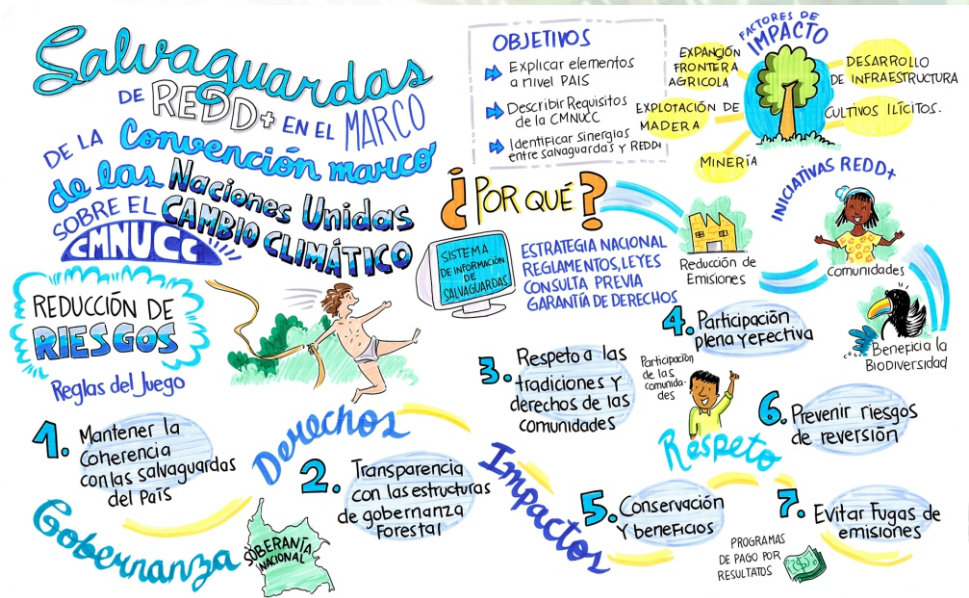 Salvaguardas
DE REDD+ EN EL MARCO
DE LA Convención marco
de las Naciones Unidas
SOBRE EL CAMBIO CLIMÁTICO
CMNUCC
OBJETIVOS
Explicar elementos
a nivel PAIS
Describir Requisitos
de la CMNUCC
Identificar sinergias
entre salvaguardas y REDD+
FACTORES DE
IMPACTO
EXPANCIÓN
FRONTERA
AGRICOLA
EXPLOTACIÓN DE
MADERA
MINERÍA
DESARROLLO
DE INFRAESTRUCTURA
CULTIVOS ILÍCITOS.
¿POR QUÉ?
SISTEMA
DE INFORMACIÓN
DE
SALVAGUARDAS
ESTRATEGIA NACIONAL
REGLAMENTOS, LEYES
CONSULTA PREVIA
GARANTÍA DE DERECHOS
INICIATIVAS REDD+
Reducción de
Emisiones
Comunidades
Beneficia la
Biodiversidad
REDUCCIÓN DE
RIESGOS
Reglas del Juego
1. Mantener la
Coherencia
con las salvaguardas
del País
Gobernanza
Derechos
2. Transparencia
con las estructuras
de gobernanza
Forestal
SOBERANÍA
NACIONAL
3. Respeto a las
tradiciones y
derechos de las
comunidades
4. Participación
plena y efectiva
Participación
de las
comunida-
des
Respeto
Impactos
5. Conservación
Y beneficios
6. Prevenir riesgos
de reversión
7. Evitar Fugas de
emisiones
PROGRAMAS
DE PAGO POR
RESULTADOS